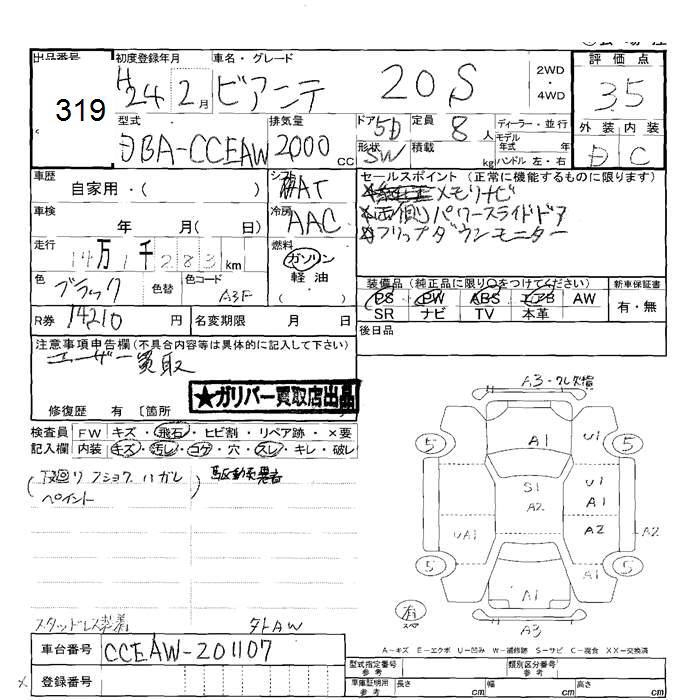 出品番号 初度登録年月 車名・グレード 評価点
319 H24 2月 ビアンテ 20S 2WD・4WD 3.5
型式 排気量 ドア 定員 ディーラー・並行 外装 内装
DBA-CCEAW 2000 cc 5D 8人 モデル年式 年 D C
形状 SW 積載 kg ハンドル 左・右
車歴 シフト セールスポイント (正常に機能するものに限ります)
自家用・( ) AT メモリナビ
車検 冷房 両側パワースライドドア
年 月( 日) AAC フリップダウンモニター
走行 燃料
14万1千283km ガソリン
軽油
( )
色 色替 色コード 装備品 (純正品に限り○をつけてください) 新車保証書
ブラック A3F PS PW ABS エアB AW 有・無
SR ナビ TV 本革
R券 14210円 名変期限 月 日 後日品
注意事項申告欄(不具合内容等は具体的に記入して下さい)
ユーザー買取
★ガリバー買取店出品
修復歴 有 〔箇所
検査員 FW キズ・飛石・ヒビ割・リペア跡・×要
記入欄 内装 キズ・汚レ・コゲ・穴・スレ・キレ・破レ
下廻り フショク ハガレ
ペイント
A3・ワレ
A1 U1
5 5
S1 U1
A2 A1
UA1 A2 A2
5 5
A1 A1
有 スペア
A3
スタッドレス装着 タトAW
A-キズ E-エクボ U-凹み W-補修跡 S-サビ C-腐食 XX-交換済
車台番号 CCEAW-201107
登録番号
型式指定番号 参考 類別区分番号 参考
車庫証明用 参考 長さ cm 幅 cm 高さ cm